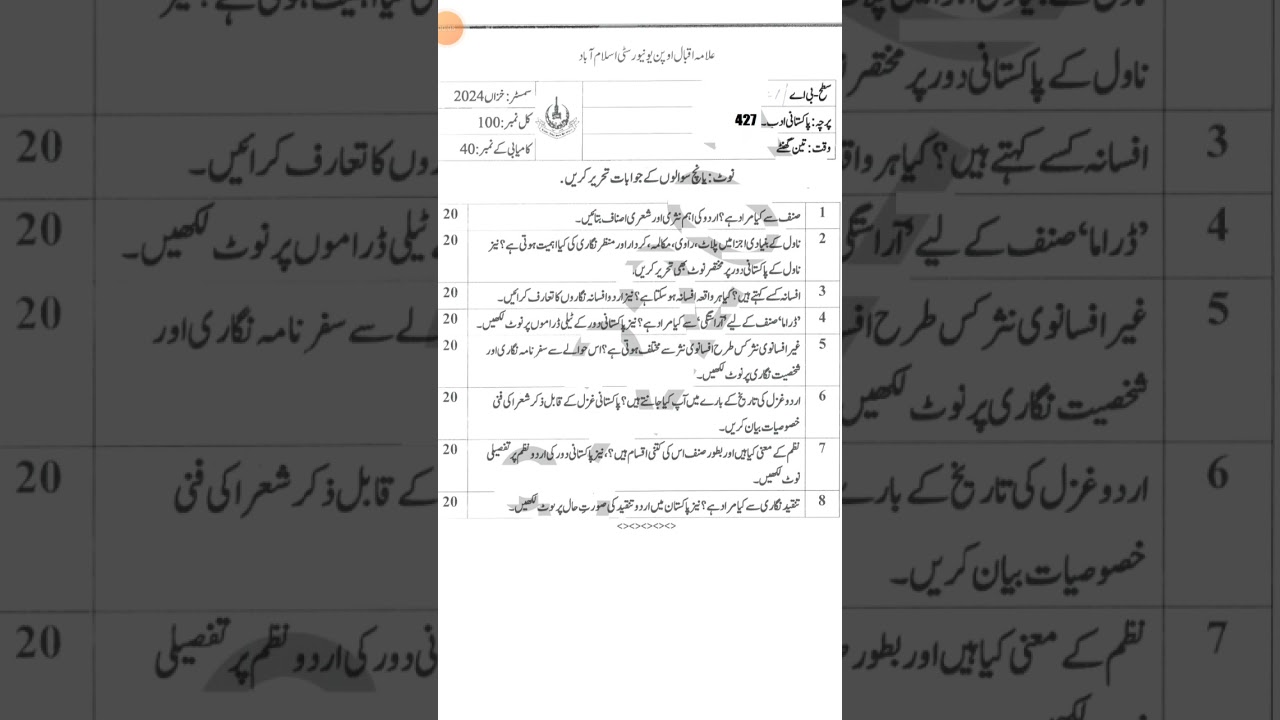 علامہ اقبال اوپن یونیورسٹی اسلام آباد
سطح-بی اے
سمسٹر: خزاں 2024
پرچہ: پاکستانی ادب۔ 427
کل نمبر: 100
وقت: تین گھنٹے
کامیابی کے نمبر: 40
نوٹ: پانچ سوالوں کے جوابات تحریر کریں۔
1 صنف سے کیا مراد ہے؟ اردو کی اہم نثری اور شعری اصناف بتائیں۔ 20
2 ناول کے بنیادی اجزا میں پلاٹ، راوی، مکالمہ، کردار اور منظر نگاری کی کیا اہمیت ہوتی ہے؟ نیز 20
ناول کے پاکستانی دور پر مختصر نوٹ بھی تحریر کریں۔
3 افسانہ کسے کہتے ہیں؟ کیا ہر واقعہ افسانہ ہو سکتا ہے؟ نیز اردو افسانہ نگاروں کا تعارف کرائیں۔ 20
4 ’ڈراما‘ صنف کے لیے ’آراستگی‘ سے کیا مراد ہے؟ نیز پاکستانی دور کے ٹیلی ڈراموں پر نوٹ لکھیں۔ 20
5 غیر افسانوی نثر کس طرح افسانوی نثر سے مختلف ہوتی ہے؟ اس حوالے سے سفر نامہ نگاری اور 20
شخصیت نگاری پر نوٹ لکھیں۔
6 اردو غزل کی تاریخ کے بارے میں آپ کیا جانتے ہیں؟ پاکستانی غزل کے قابل ذکر شعرا کی فنی 20
خصوصیات بیان کریں۔
7 نظم کے معنی کیا ہیں اور بطور صنف اس کی کتنی اقسام ہیں؟، نیز پاکستانی دور کی اردو نظم پر تفصیلی 20
نوٹ لکھیں۔
8 تنقید نگاری سے کیا مراد ہے؟ نیز پاکستان میں اردو تنقید کی صورتِ حال پر نوٹ لکھیں۔ 20
<><><><><>